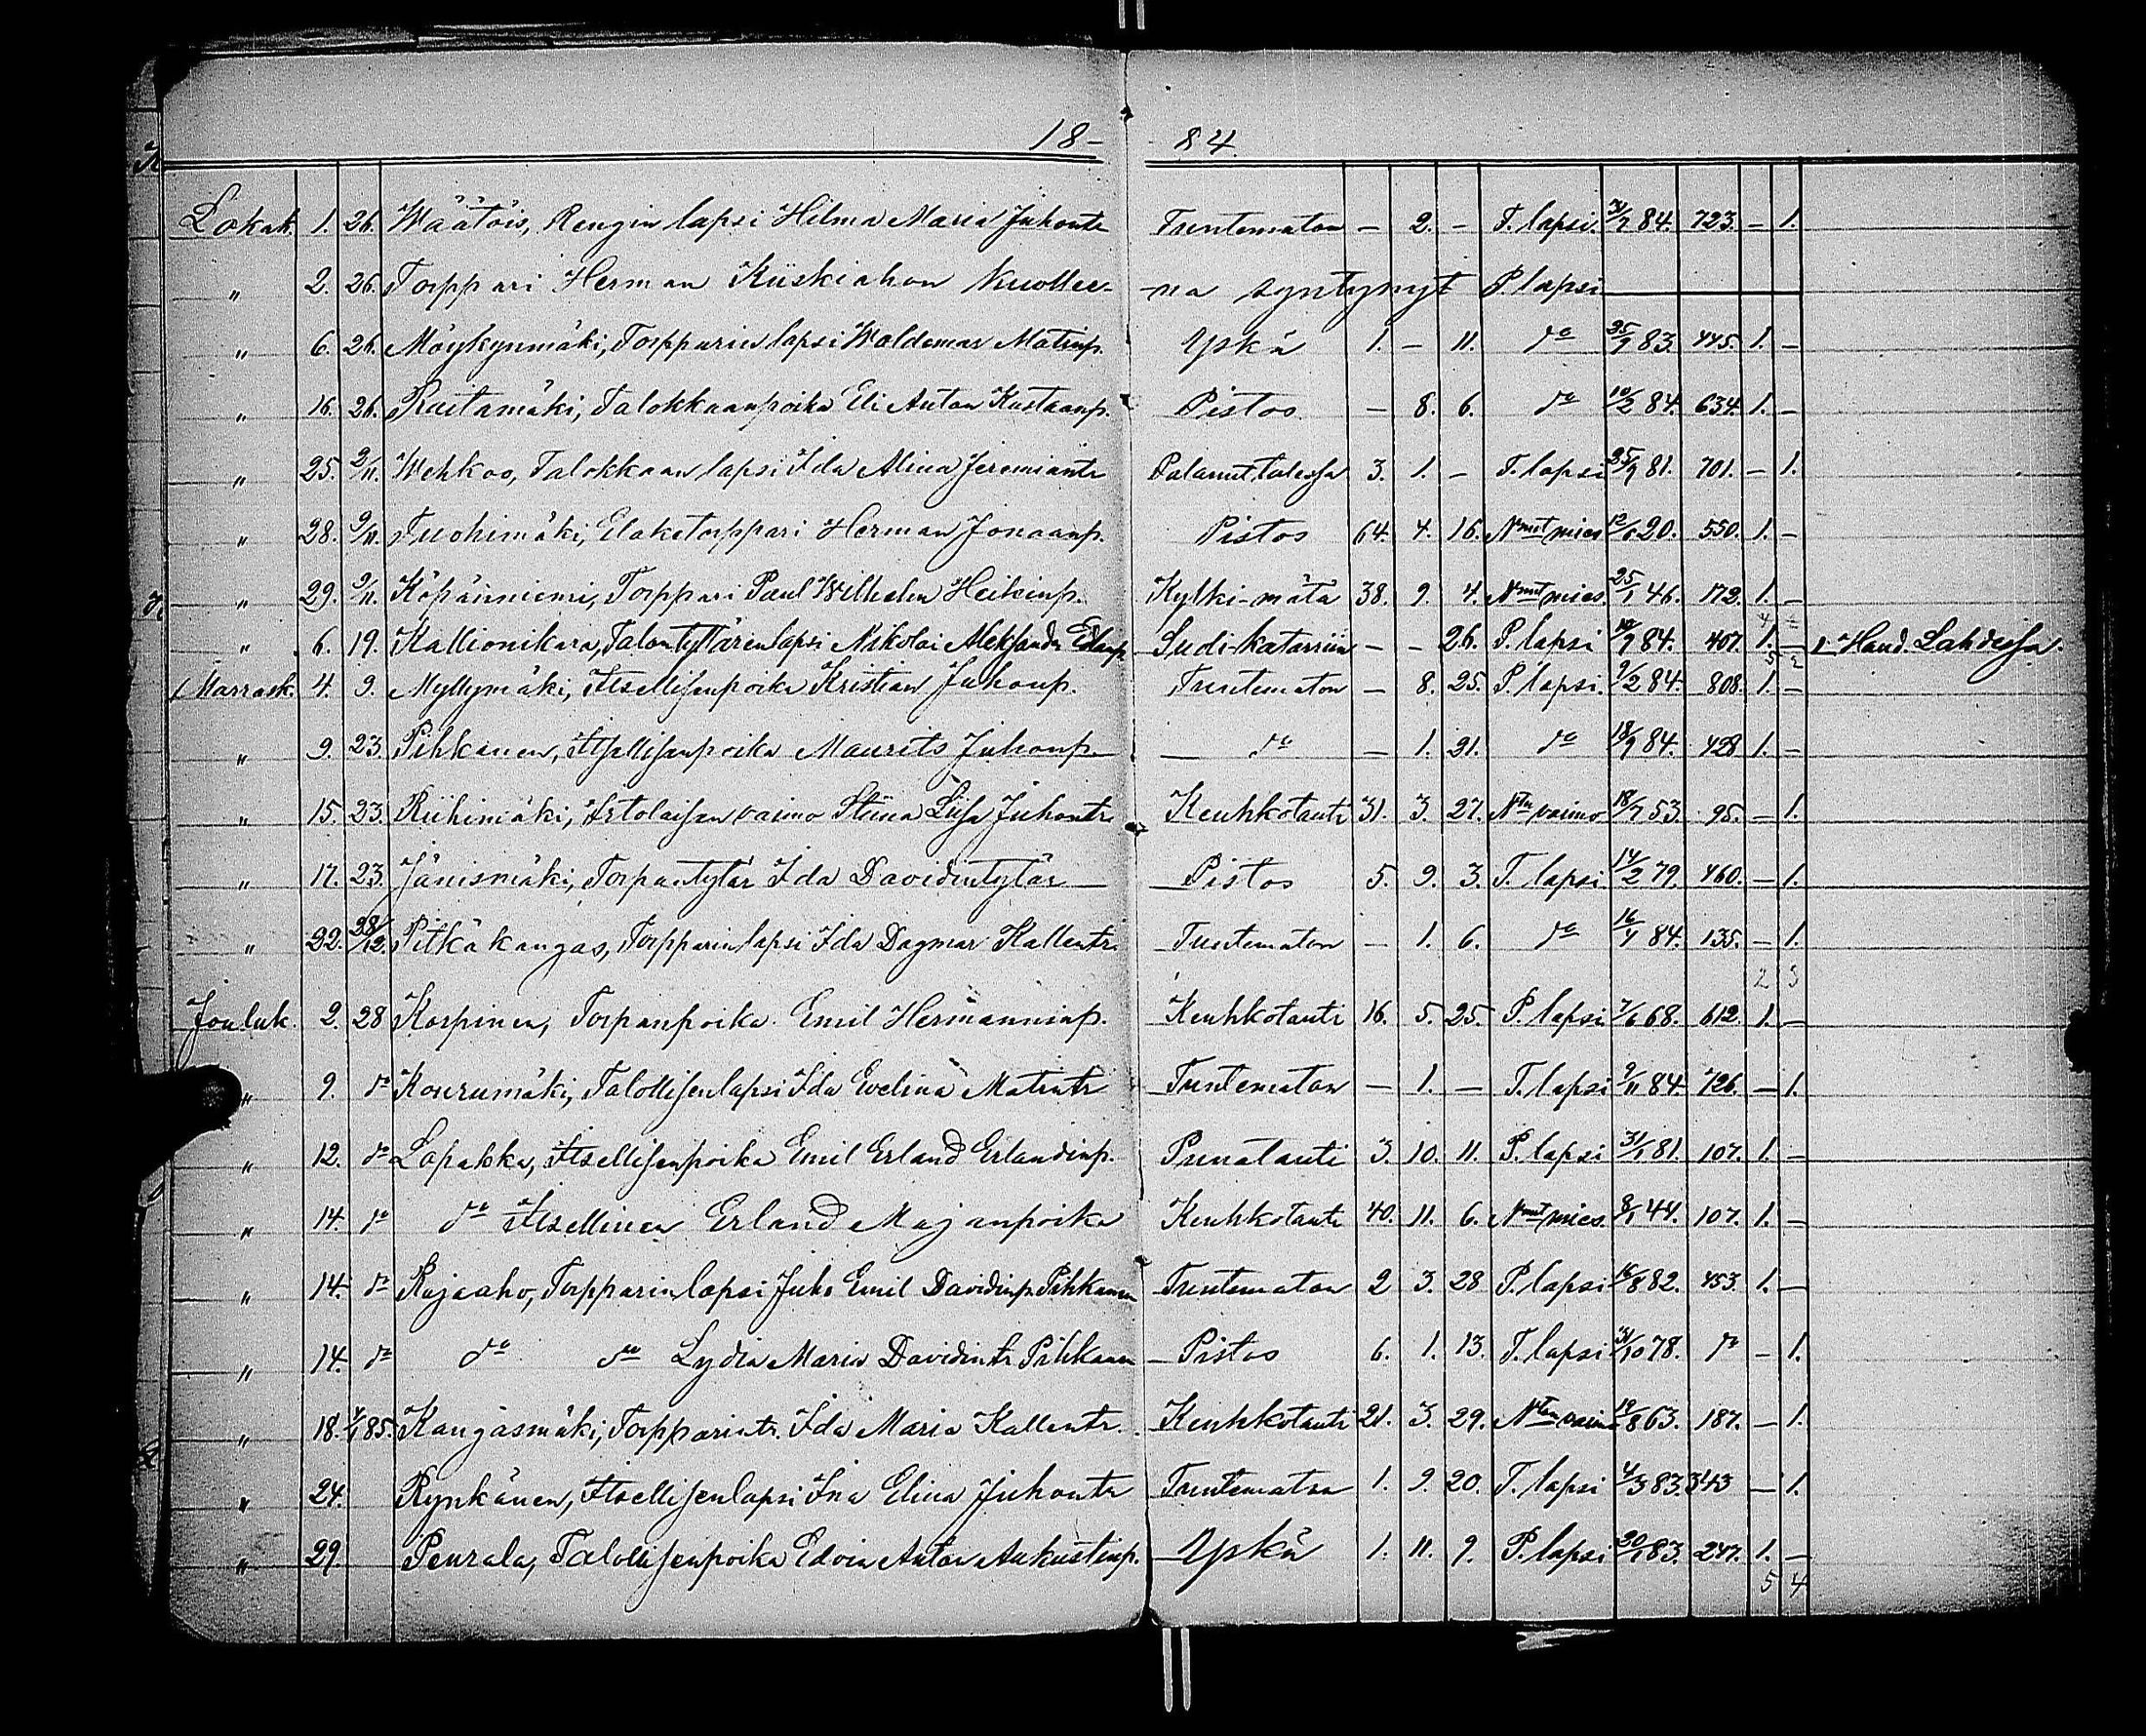 18- -84.
Lokak. 1. 26. Wäätäis, Rengin lapsi Hilma Maria Juhontr Tuntematon - 2. - T. lapsi. /7 84. 723. - 1.
" 2. 26. Torppari Herman Kiiskiahon kuollee- -na syntynyt P. lapsi
" 6. 26. Möykynmäki, Torpparin lapsi Waldemar Matinp. Yskä 1. - 11. do 25/9 83. 445. 1. -
" 16. 26. Raitamäki, Talokkaanpoika Eli Anton Kustaanp. Pistos. - 8. 6. do 10/2 84. 634. 1. -
" 25. 2/11. Wehkoo, Talokkaan lapsi Ida Alina Jeremiantr Palanut talossa 3. 1. - T. lapsi 25/9 81. 701. - 1.
" 28. 9/11. Tuohimäki, Eläketorppari Herman Jonaanp. Pistos 64. 4. 16. Nmut mies 12/6 20. 550. 1. -
" 29. 9/11. Köpäinniemi, Torppari Paul Wilhelm Heikinp. Kylki-mätä 38. 9. 4. Nmut mies. 25/1 46. 172. 1. -
" 6. 19. Kallionikara, Talontyttären lapsi Nikolai Aleksander Sudi-katarriin - - 26. P. lapsi 10/9 84. 407. 1. - Haud. Lahdessa.
Marrask. 4. 9. Myllymäki, Itsellisenpoika Kristian Juhonp. Tuntematon - 8. 25. P. lapsi. 9/2 84. 808. 1. -
" 9. 23. Pihkanen, Itsellisenpoika Maurits Juhonp. do - 1. 21. do 18/9 84. 428 1. -
" 15. 23. Riihimäki, Irtolaisen vaimo Stiina Liisa Juhontr. Keuhkotauti 31. 3. 27. Ntu vaimo 18/7 53. 95. - 1.
" 17. 23 Jänismäki, Torpantytär Ida Davidintytär Pistos 5. 9. 3. T. lapsi. 14/2 79. 460. - 1.
" 22. 28/12. Pitkäkangas, Torpparin lapsi Ida Dagmar Kallentr. Tuntematon - 1. 6. do 16/ 84. 135. - 1.
2 3
Jouluk. 2. 28 Korpinen, Torpanpoika Emil Hermanninp. Keuhkotauti 16. 5. 25. P. lapsi 7/6 68. 612. 1. -
" 9. do Kourumäki, Talollisen lapsi Ida Evelina Matintr Tuntematon - 1. - T. lapsi 9/11 84. 726. - 1.
" 12. do Lapakka, Itsellisenpoika Emil Erland Erlandinp. Punatauti 3. 10. 11. P. lapsi 31/1 81. 107. 1. -
" 14. do do Itsellinen Erland Majanpoika Keuhkotauti 40. 11. 6. Nmut mies. 8/1 44. 107. 1. -
" 14. do Rajaaho, Torpparin lapsi Juho Emil Davidinp. Pihkanen Tuntematon 2 3. 28 P. lapsi 16/8 82. 453. 1. -
" 14. do do do Lydia Maria Davidintr Pihkanen Pistos 6. 1. 13. T. lapsi 31/10 78. do - 1.
" 18. 4/1 85. Kangasmäki, Torpparintr. Ida Maria Kallentr. Keuhkotauti 21. 3. 29. vaimo 19/8 63. 187. - 1.
" 24. Rynkänen, Itsellisen lapsi Ina Elina Juhontr Tuntematon 1. 9. 20. T. lapsi 4/3 83. 343 - 1.
" 29. Peurala, Talollisenpoika Edvin Anton Aukustinp. Yskä 1. 11. 9. P. lapsi 20/1 83. 247. 1. -
5 4